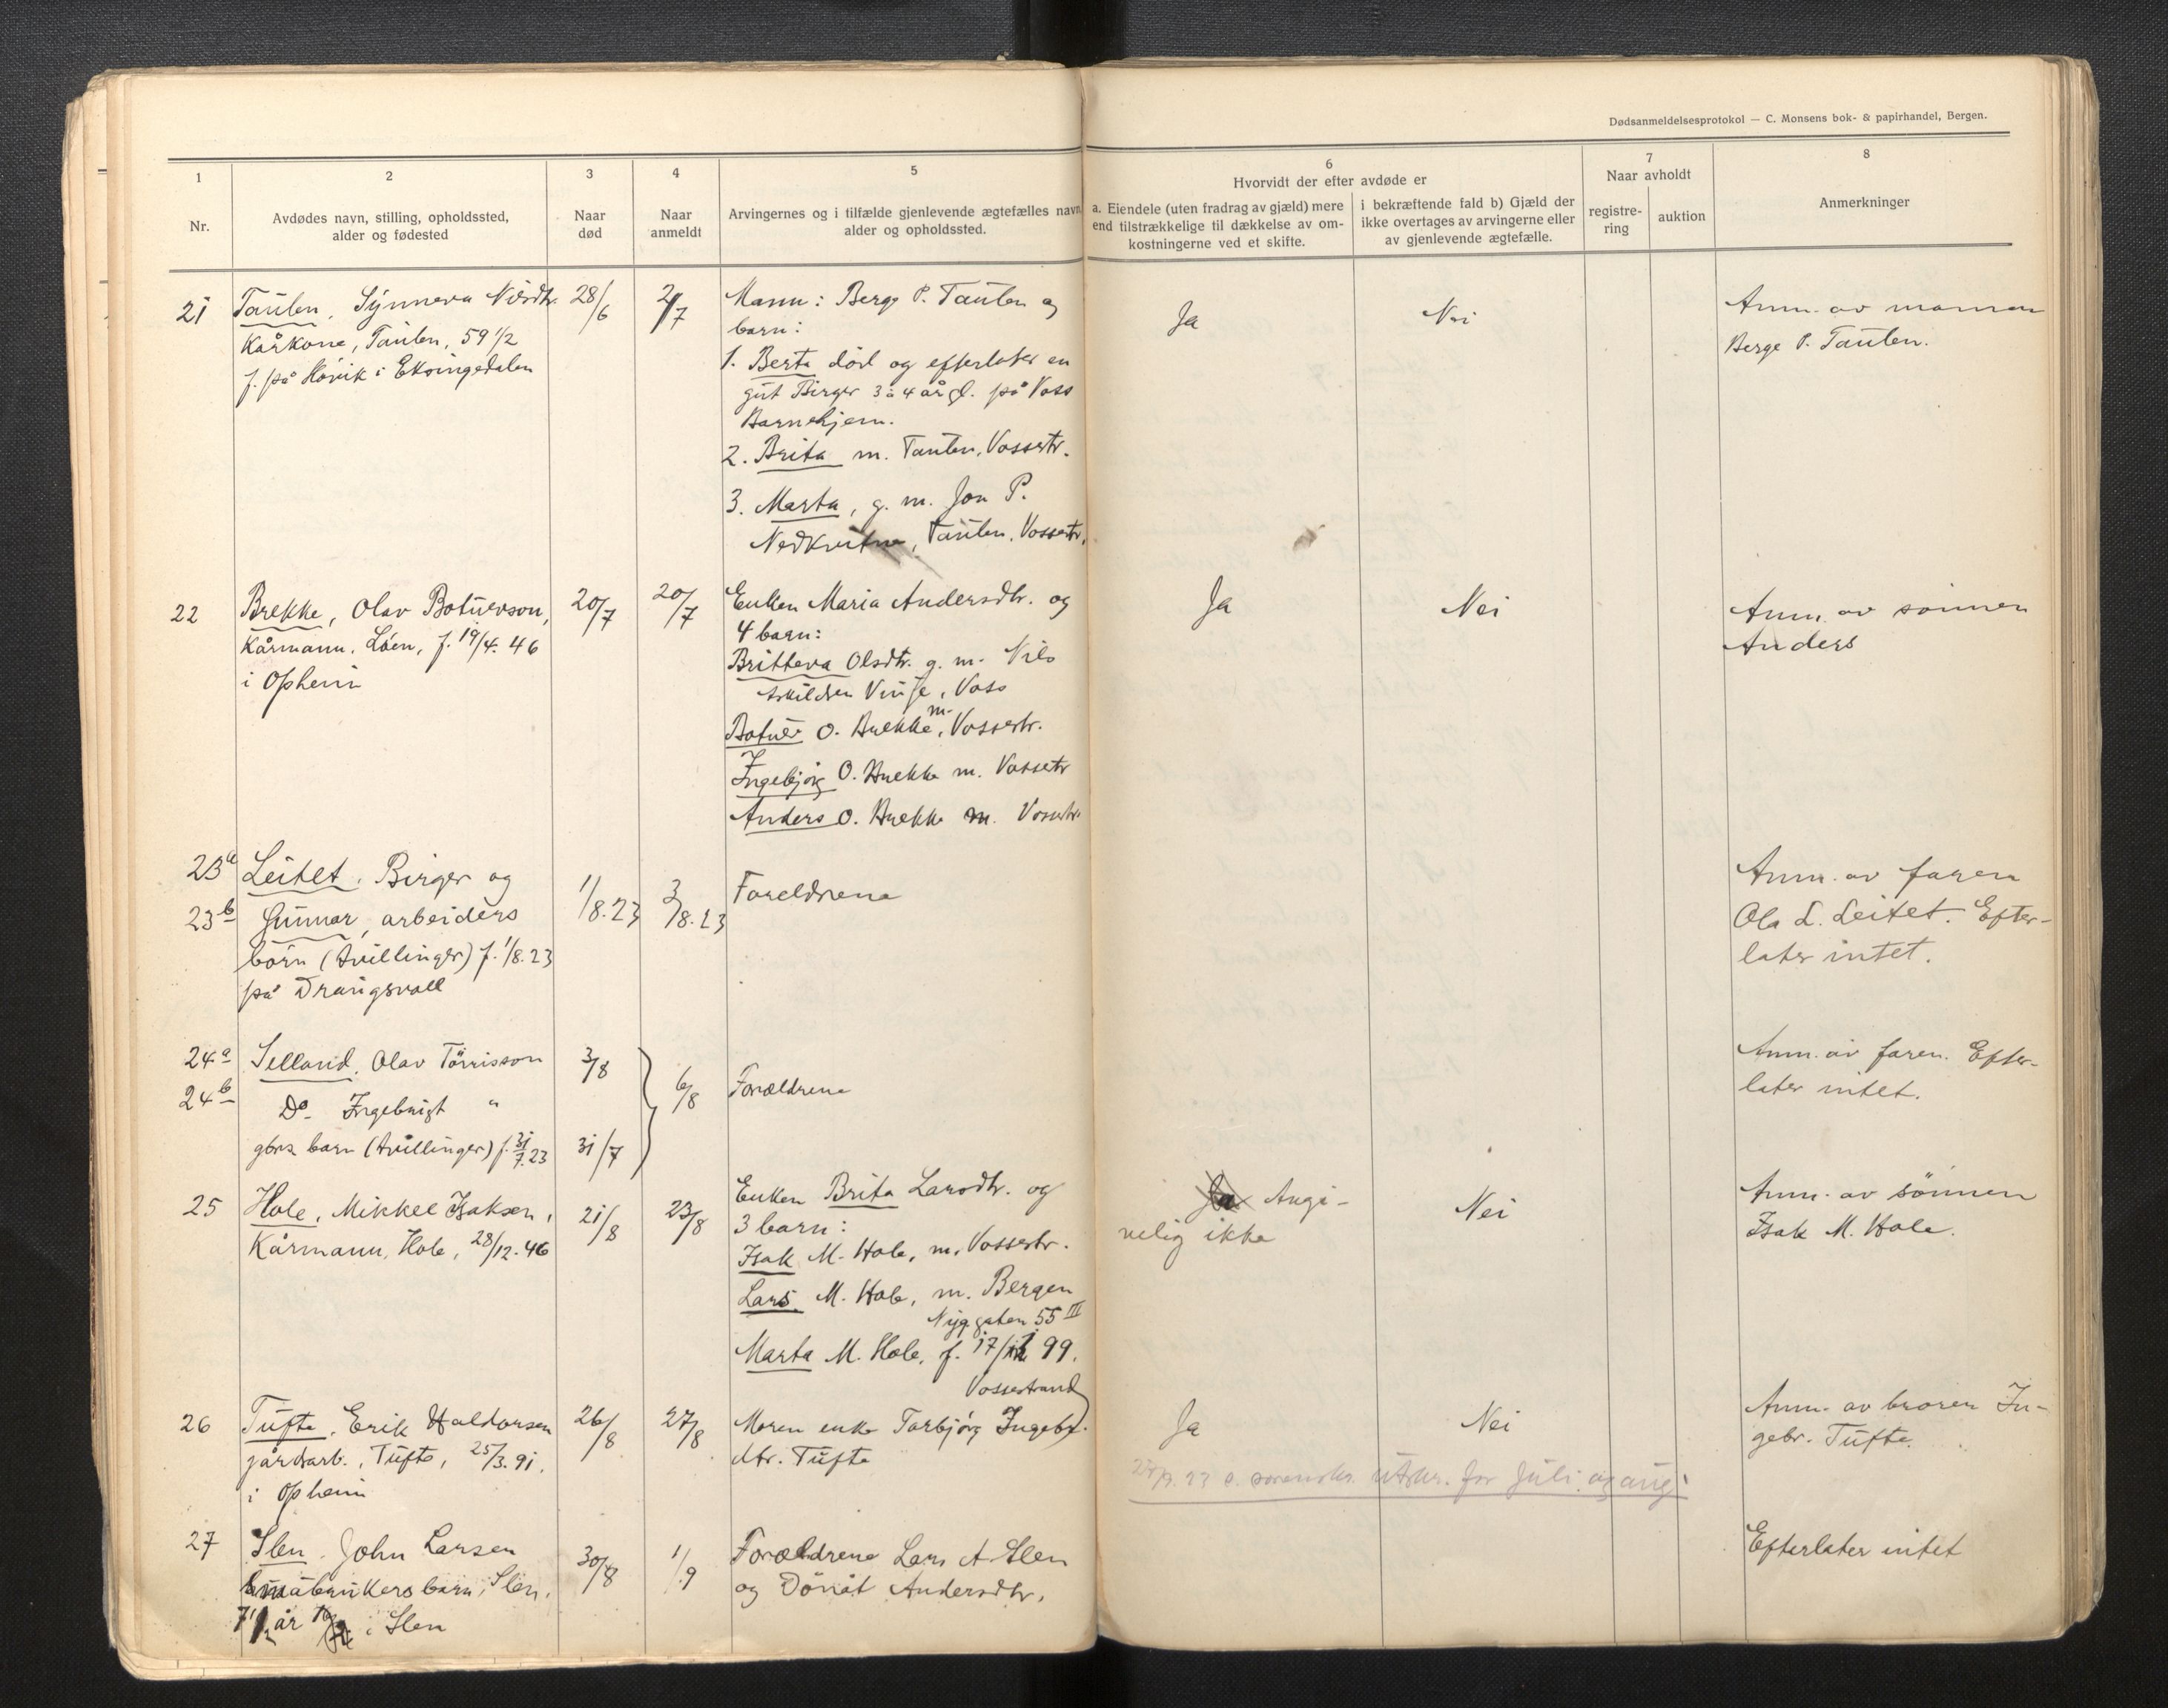 Dødsanmeldelsesprotokol — C. Monsens bok- & papirhandel, Bergen.
1
Nr.
2
Avdødes navn, stilling, opholdssted,
alder og fødested
3
Naar
død
4
Naar
anmeldt
5
Arvingernes og i tilfælde gjenlevende ægtefælles navn
alder og opholdssted.
6
Hvorvidt der efter avdøde er
a. Eiendele (uten fradrag av gjæld) mere
end tilstrækkelige til dækkelse av om-
kostningerne ved et skifte.
i bekræftende fald b) Gjæld der
ikke overtages av arvingerne eller
av gjenlevende ægtefælle.
7
Naar avholdt
registre-
ring
auktion
8
Anmerkninger
21
Taulen, Synneva Nilsdtr.
Kårkone, Taulen, 59 1/2
f. på Høvik i Eksingedalen
28/6
2/7
Mann: Berge P. Taulen og
barn:
1. Berta död og efterlater en
gut Birger 3 à 4 år gl. på Voss
Barnehjem.
2. Brita m. Taulen, Vossestr.
3. Marta, g. m. Jon P.
Nedkvitne, Taulen, Vossestr.
Ja
Nei
Anm. av mannen
Berge P. Taulen.
22
Brekke, Olav Botuvson,
Kårmann, Löen, f. 19/4. 46
i Opheim
20/7
20/7
Enken Maria Andersdtr. og
4 barn:
Britteva Olsdtr. g. m. Nils
Askildsen Vinje, Voss
Botuv O. Brekke m., Vossestr.
Ingebjörg O. Brekke m. Vossestr
Anders O. Brekke m. Vossestr.
Ja
Nei
Anm. av sönnen
Anders
23a
23b
Leitet, Birger og
Gunnar, arbeiders
börn (tvillinger) f. 1/8.23
på Drangsvoll
1/8.23
3/8.23
Foreldrene
Anm. av faren
Ola L. Leitet. Efter-
later intet.
24a
24b
Selland, Olav Törrisson
Do. Ingebrigt "
gbrs. barn (tvillinger) f. 31/7.23
3/8
31/7
6/8
Forældrene
Anm. av faren. Efter-
later intet.
25
Hole, Mikkel Isaksen,
Kårmann, Hole, 28/12. 46
21/8
23/8
Enken Brita Larsdtr. og
3 barn:
Isak M. Hole, m. Vossestr.
Lars M. Hole, m. Bergen
Nyg.gaten 55 III
Marta M. Hole, f. 17/ 99.
Vossestrand
Ja Angi-
velig ikke
Nei
Anm. av sönnen
Isak M. Hole.
26
Tufte, Erik Haldorsen
gårdsarb., Tufte, 25/3. 91.
i Opheim
26/8
27/8
Moren enke Torbjörg Ingebr.
dtr. Tufte
Ja
Nei
Anm. av broren In-
gebr. Tufte.
23 s. sorenskr. utskr. for juli og aug.
27
Slen, John Larsen
småbrukers barn, Slen,
7 1/2 år i Slen
30/8
1/9
Forældrene Lars A. Slen
og Dönåt Andersdtr.
Efterlater intet